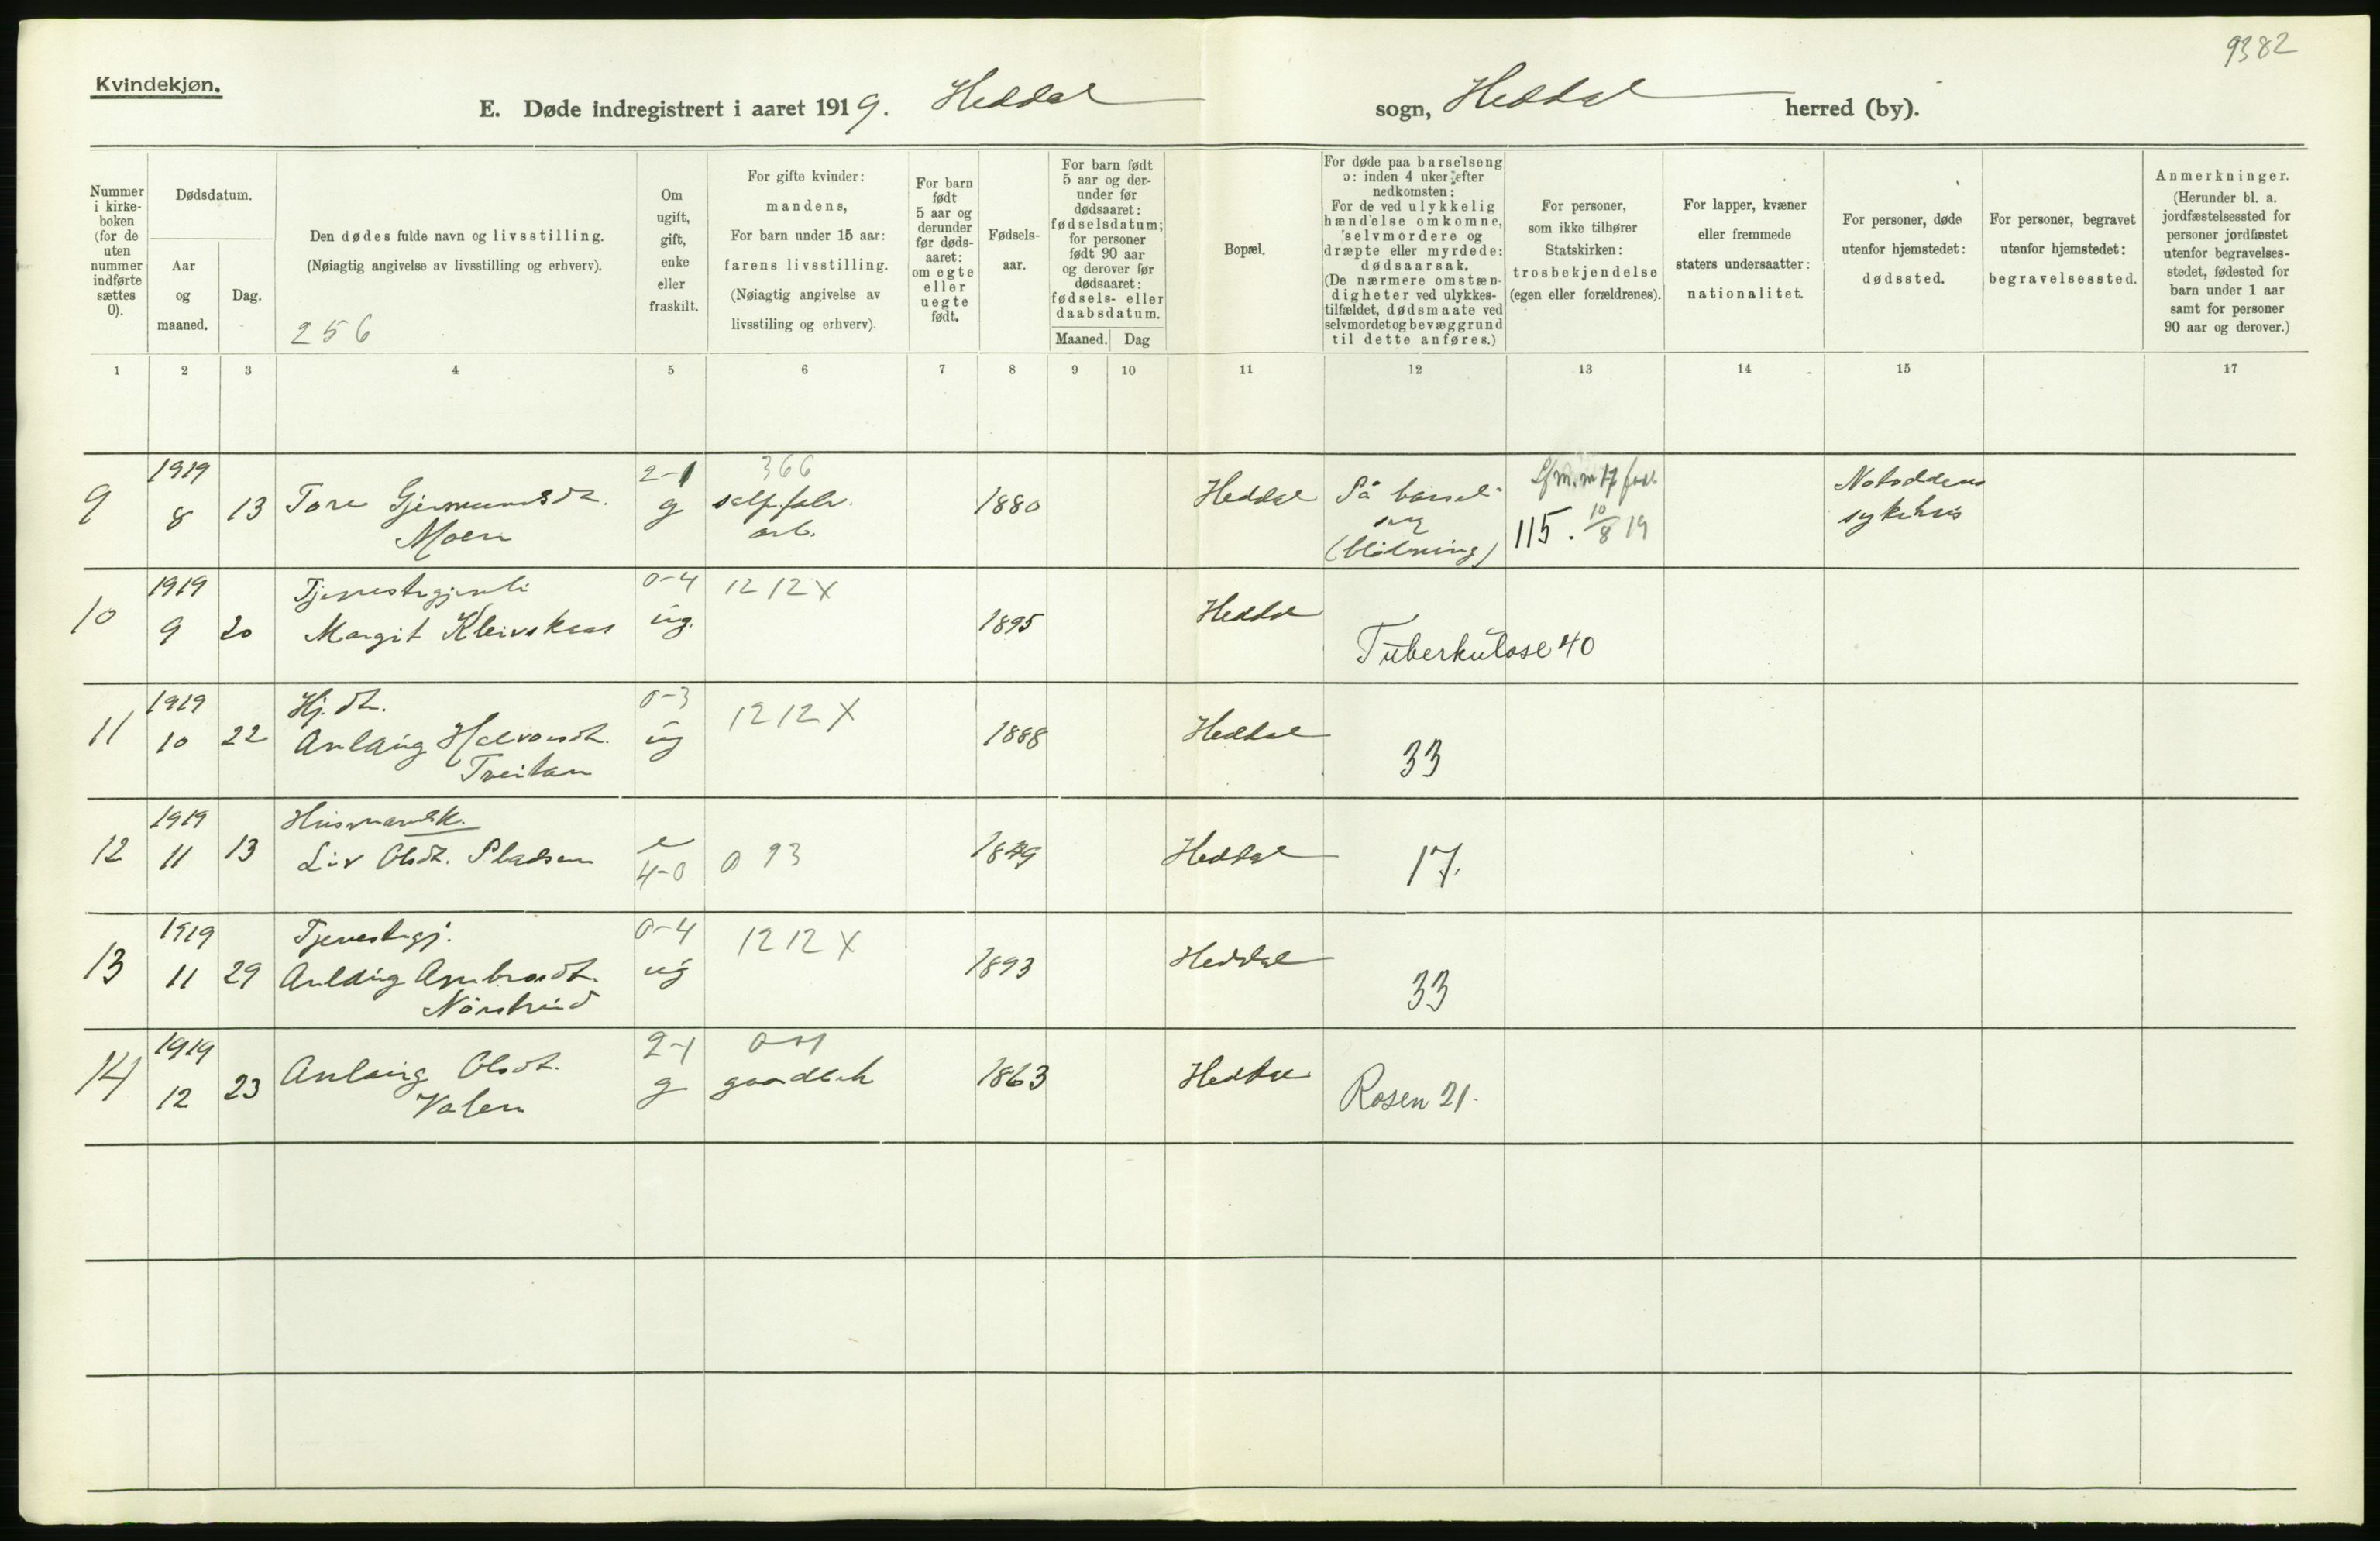 9382
Kvindekjøn.
E. Døde indregistrert i aaret 1919. Heddal sogn, Heddal herred (by).
Nummer i kirkeboken (for de uten nummer indførte sættes 0).
Dødsdatum.
Aar og maaned.
Dag.
Den dødes fulde navn og livsstilling.
(Nøiagtig angivelse av livsstilling og erhverv).
256
Om ugift, gift, enke eller fraskilt.
For gifte kvinder: mandens,
For barn under 15 aar: farens livsstilling.
(Nøiagtig angivelse av livsstiling og erhverv).
For barn født 5 aar og derunder før dødsaaret: om egte eller uegte født.
Fødselsaar.
For barn født 5 aar og derunder før dødsaaret: fødselsdatum; for personer født 90 aar og derover før dødsaaret: fødsels- eller daabsdatum.
Maaned. Dag
Bopæl.
For døde paa barselseng ɔ: inden 4 uker efter nedkomsten:
For de ved ulykkelig hændelse omkomne, selvmordere og dræpte eller myrdede: dødsaarsak.
(De nærmere omstændigheter ved ulykkestilfældet, dødsmaate ved selvmordet og bevæggrund til dette anføres.)
For personer, som ikke tilhører Statskirken: trosbekjendelse (egen eller forældrenes).
For lapper, kvæner eller fremmede staters undersaatter: nationalitet.
For personer, døde utenfor hjemstedet: dødssted.
For personer, begravet utenfor hjemstedet: begravelsessted.
Anmerkninger.
(Herunder bl. a. jordfæstelsessted for personer jordfæstet utenfor begravelsesstedet, fødested for barn under 1 aar samt for personer 90 aar og derover.)
1 2 3 4 5 6 7 8 9 10 11 12 13 14 15 17
1919 2-1 366
9 8 13 Tore Gjermundsdt. g 1880 Heddal På barsel- Notoddens
Moen arb. (blødning) 115. 10/8 19 sykehus
1919 0-4 1212X
10 9 20 Margit Kleivskaas ug. 1895 Heddal
Tuberkulose 40
1919 Hj. dt. 0-3 1212X
11 10 22 Anlaug Halvorsdt. ug 1888 Heddal
Tveitan 33
1919 Husmandsk.
12 11 13 Liv Olsdt. Pladsen e 1849 Heddal 17.
4-0 0 93
1919 Tjenestegj. 0-4 1212X
13 11 29 Anlaug ug 1893 Heddal
33
1919 2-1
14 12 23 Anlaug Olsdt. g gaardbr. 1863 Heddal
Valen Rosen 21.